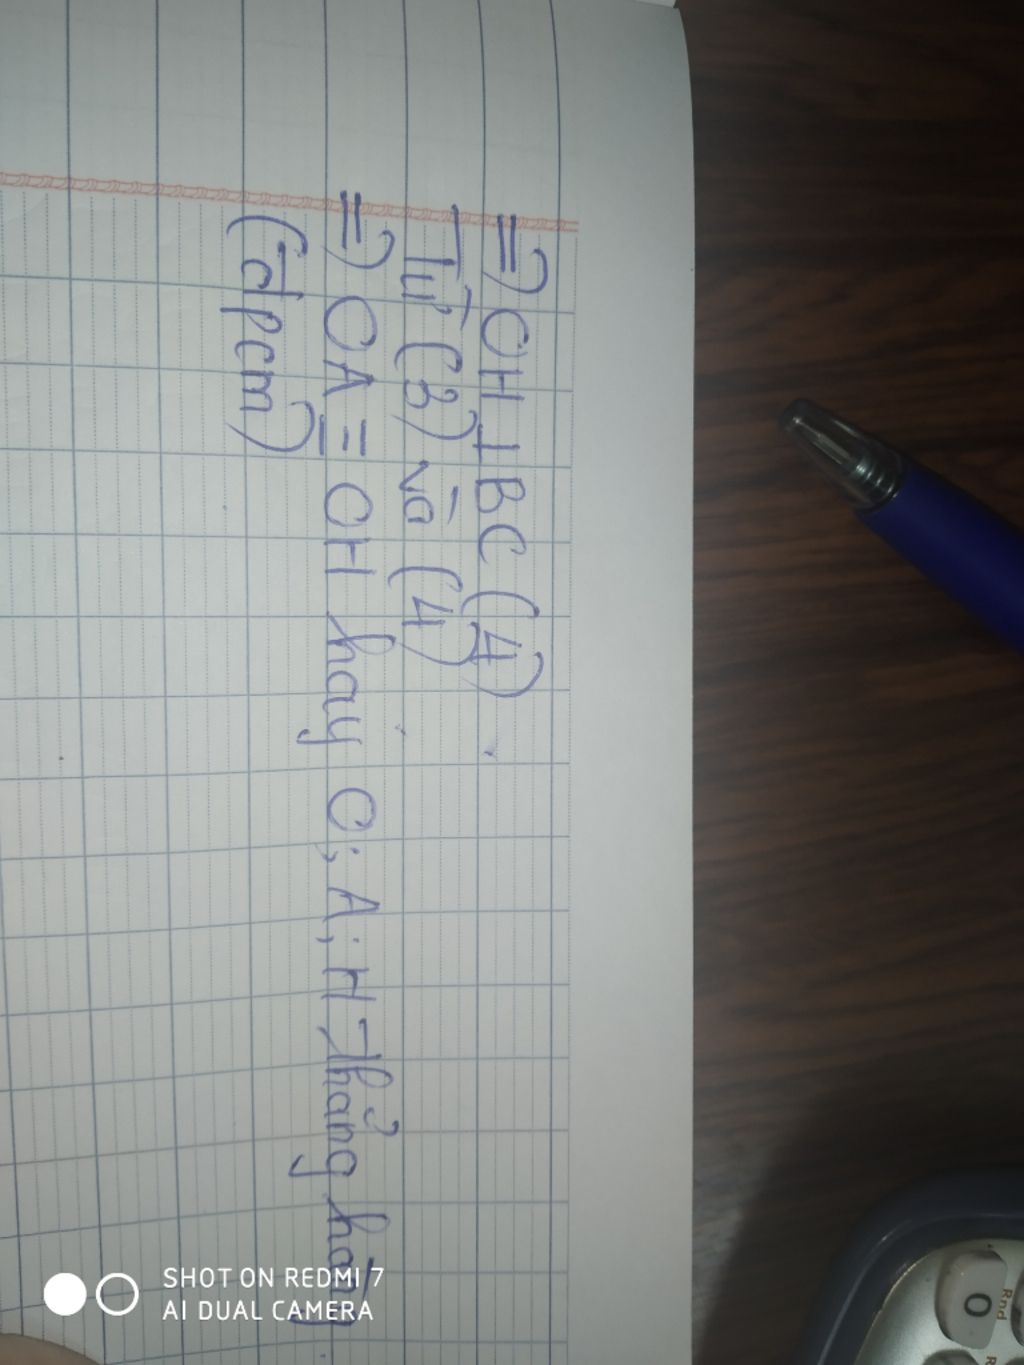 =) OH ⊥ BC (4)
Từ (3) và (4)
=) OA = OH hay O; A; H Thẳng hàng
(đpcm)
SHOT ON REDMI 7
AI DUAL CAMERA
Rnd
0